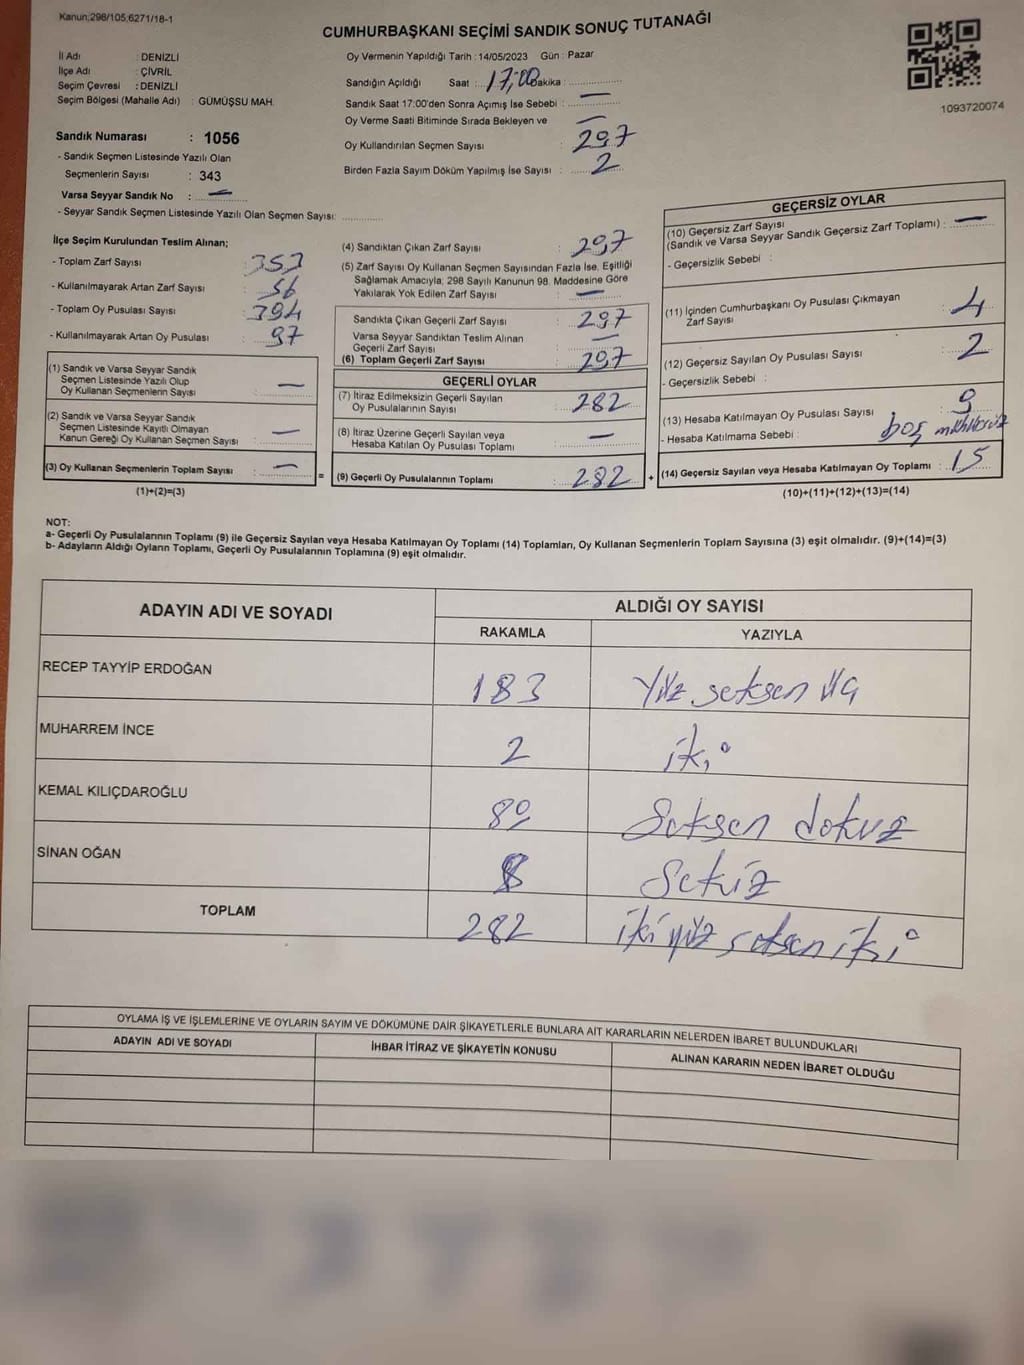 Kanun;298/105;6271/18-1
CUMHURBAŞKANI SEÇİMİ SANDIK SONUÇ TUTANAĞI
İl Adı : DENİZLİ
İlçe Adı : ÇİVRİL
Seçim Çevresi : DENİZLİ
Seçim Bölgesi (Mahalle Adı) : GÜMÜŞSU MAH.
Sandık Numarası : 1056
- Sandık Seçmen Listesinde Yazılı Olan
Seçmenlerin Sayısı : 343
Varsa Seyyar Sandık No : —
- Seyyar Sandık Seçmen Listesinde Yazılı Olan Seçmen Sayısı:
Oy Vermenin Yapıldığı Tarih : 14/05/2023 Gün : Pazar
Sandığın Açıldığı Saat : 17;00 Dakika :
Sandık Saat 17:00'den Sonra Açımış İse Sebebi : —
Oy Verme Saati Bitiminde Sırada Bekleyen ve —
Oy Kullandırılan Seçmen Sayısı : 297
Birden Fazla Sayım Döküm Yapılmış İse Sayısı : 2
1093720074
İlçe Seçim Kurulundan Teslim Alınan;
- Toplam Zarf Sayısı : 353
- Kullanılmayarak Artan Zarf Sayısı : 56
- Toplam Oy Pusulası Sayısı : 394
- Kullanılmayarak Artan Oy Pusulası : 97
(1) Sandık ve Varsa Seyyar Sandık
Seçmen Listesinde Yazılı Olup
Oy Kullanan Seçmenlerin Sayısı : —
(2) Sandık ve Varsa Seyyar Sandık
Seçmen Listesinde Kayıtlı Olmayan
Kanun Gereği Oy Kullanan Seçmen Sayısı : —
(3) Oy Kullanan Seçmenlerin Toplam Sayısı : —
(1)+(2)=(3)
=
(4) Sandıktan Çıkan Zarf Sayısı : 297
(5) Zarf Sayısı Oy Kullanan Seçmen Sayısından Fazla İse, Eşitliği
Sağlamak Amacıyla; 298 Sayılı Kanunun 98. Maddesine Göre
Yakılarak Yok Edilen Zarf Sayısı : —
Sandıkta Çıkan Geçerli Zarf Sayısı : 297
Varsa Seyyar Sandıktan Teslim Alınan
Geçerli Zarf Sayısı : —
(6) Toplam Geçerli Zarf Sayısı : 297
GEÇERLİ OYLAR
(7) İtiraz Edilmeksizin Geçerli Sayılan
Oy Pusulalarının Sayısı : 282
(8) İtiraz Üzerine Geçerli Sayılan veya
Hesaba Katılan Oy Pusulası Toplamı : —
(9) Geçerli Oy Pusulalarının Toplamı : 282
+
GEÇERSİZ OYLAR
(10) Geçersiz Zarf Sayısı
(Sandık ve Varsa Seyyar Sandık Geçersiz Zarf Toplamı) : —
- Geçersizlik Sebebi :
(11) İçinden Cumhurbaşkanı Oy Pusulası Çıkmayan
Zarf Sayısı : 4
(12) Geçersiz Sayılan Oy Pusulası Sayısı : 2
- Geçersizlik Sebebi :
(13) Hesaba Katılmayan Oy Pusulası Sayısı : 9
- Hesaba Katılmama Sebebi : boş mühürsüz
(14) Geçersiz Sayılan veya Hesaba Katılmayan Oy Toplamı : 15
(10)+(11)+(12)+(13)=(14)
NOT:
a- Geçerli Oy Pusulalarının Toplamı (9) ile Geçersiz Sayılan veya Hesaba Katılmayan Oy Toplamı (14) Toplamları, Oy Kullanan Seçmenlerin Toplam Sayısına (3) eşit olmalıdır. (9)+(14)=(3)
b- Adayların Aldığı Oyların Toplamı, Geçerli Oy Pusulalarının Toplamına (9) eşit olmalıdır.
ADAYIN ADI VE SOYADI
ALDIĞI OY SAYISI
RAKAMLA YAZIYLA
RECEP TAYYİP ERDOĞAN 183 Yüz seksen üç
MUHARREM İNCE 2 iki
KEMAL KILIÇDAROĞLU 89 Seksen dokuz
SİNAN OĞAN 8 Sekiz
TOPLAM 282 iki yüz seksen iki
OYLAMA İŞ VE İŞLEMLERİNE VE OYLARIN SAYIM VE DÖKÜMÜNE DAİR ŞİKAYETLERLE BUNLARA AİT KARARLARIN NELERDEN İBARET BULUNDUKLARI
ADAYIN ADI VE SOYADI İHBAR İTİRAZ VE ŞİKAYETİN KONUSU ALINAN KARARIN NEDEN İBARET OLDUĞU